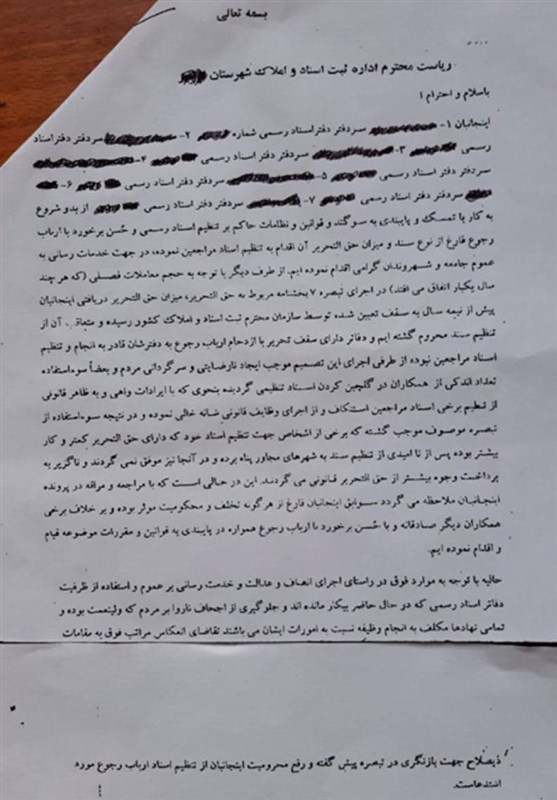 بسمه تعالی
ریاست محترم اداره ثبت اسناد و املاک شهرستان
باسلام و احترام ؛
اینجانبان ۱- سردفتر دفتراسناد رسمی شماره ۲- سردفتر دفتراسناد
رسمی ۳- سردفتر دفتر اسناد رسمی ۴-
سردفتر دفتر اسناد رسمی ۵- سردفتر دفتر اسناد رسمی ۶-
سردفتر دفتر اسناد رسمی ۷- سردفتر دفتر اسناد رسمی از بدو شروع
به کار با تمسک و پایبندی به سوگند و قوانین و نظامات حاکم بر تنظیم اسناد رسمی و حُسن برخورد با ارباب
رجوع فارغ از نوع سند و میزان حق التحریر آن اقدام به تنظیم اسناد مراجعین نموده، در جهت خدمات رسانی به
عموم جامعه و شهروندان گرامی اقدام نموده ایم. از طرف دیگر با توجه به حجم معاملات فصلی (که هر چند
سال یکبار اتفاق می افتد) در اجرای تبصره ۷ بخشنامه مربوط به حق التحریر، میزان حق التحریر دریافتی اینجانبان
پیش از نیمه سال به سقف تعیین شده توسط سازمان محترم ثبت اسناد و املاک کشور رسیده و متعاقب آن از
تنظیم سند محروم گشته ایم و دفاتر دارای سقف تحریر با ازدحام ارباب رجوع به دفترشان قادر به انجام و تنظیم
اسناد مراجعین نبوده از طرفی اجرای این تصمیم موجب ایجاد نارضایتی و سرگردانی مردم و بعضاً سوءاستفاده
تعداد اندکی از همکاران در گلچین کردن اسناد تنظیمی گردیده بنحوی که با ایرادات واهی و به ظاهر قانونی
از تنظیم برخی اسناد مراجعین استنکاف و از اجرای وظایف قانونی شانه خالی نموده و در نتیجه سوءاستفاده از
تبصره موصوف موجب گشته که برخی از اشخاصی جهت تنظیم اسناد خود که دارای حق التحریر کمتر و کار
بیشتر بوده پس از نا امیدی از تنظیم سند به شهرهای مجاور پناه برده و در آنجا نیز موفق نمی گردند و ناگزیر به
پرداخت وجوه بیشتر از حق التحریر قانونی می گردند. این در حالی است که با مراجعه و مراقه در پرونده
اینجانبان ملاحظه می گردد سوابق اینجانبان فارغ از هرگونه تخلف و محکومیت موثر بوده و بر خلاف برخی
همکاران دیگر صادقانه و با حُسن برخورد با ارباب رجوع همواره در پایبندی به قوانین و مقررات موضوعه قیام
و اقدام نموده ایم.
حالیه با توجه به موارد فوق در راستای اجرای انصاف و عدالت و خدمت رسانی بر عموم و استفاده از ظرفیت
دفاتر اسناد رسمی که در حال حاضر بیکار مانده اند و جلوگیری از اجحاف ناروا بر مردم که ولینعمت بوده و
تمامی نهادها مکلف به انجام وظیفه نسبت به امورات ایشان می باشند تقاضای انعکاس مراتب فوق به مقامات
ذیصلاح جهت بازنگری در تبصره پیش گفته و رفع محرومیت اینجانبان از تنظیم اسناد ارباب رجوع مورد
استدعاست.